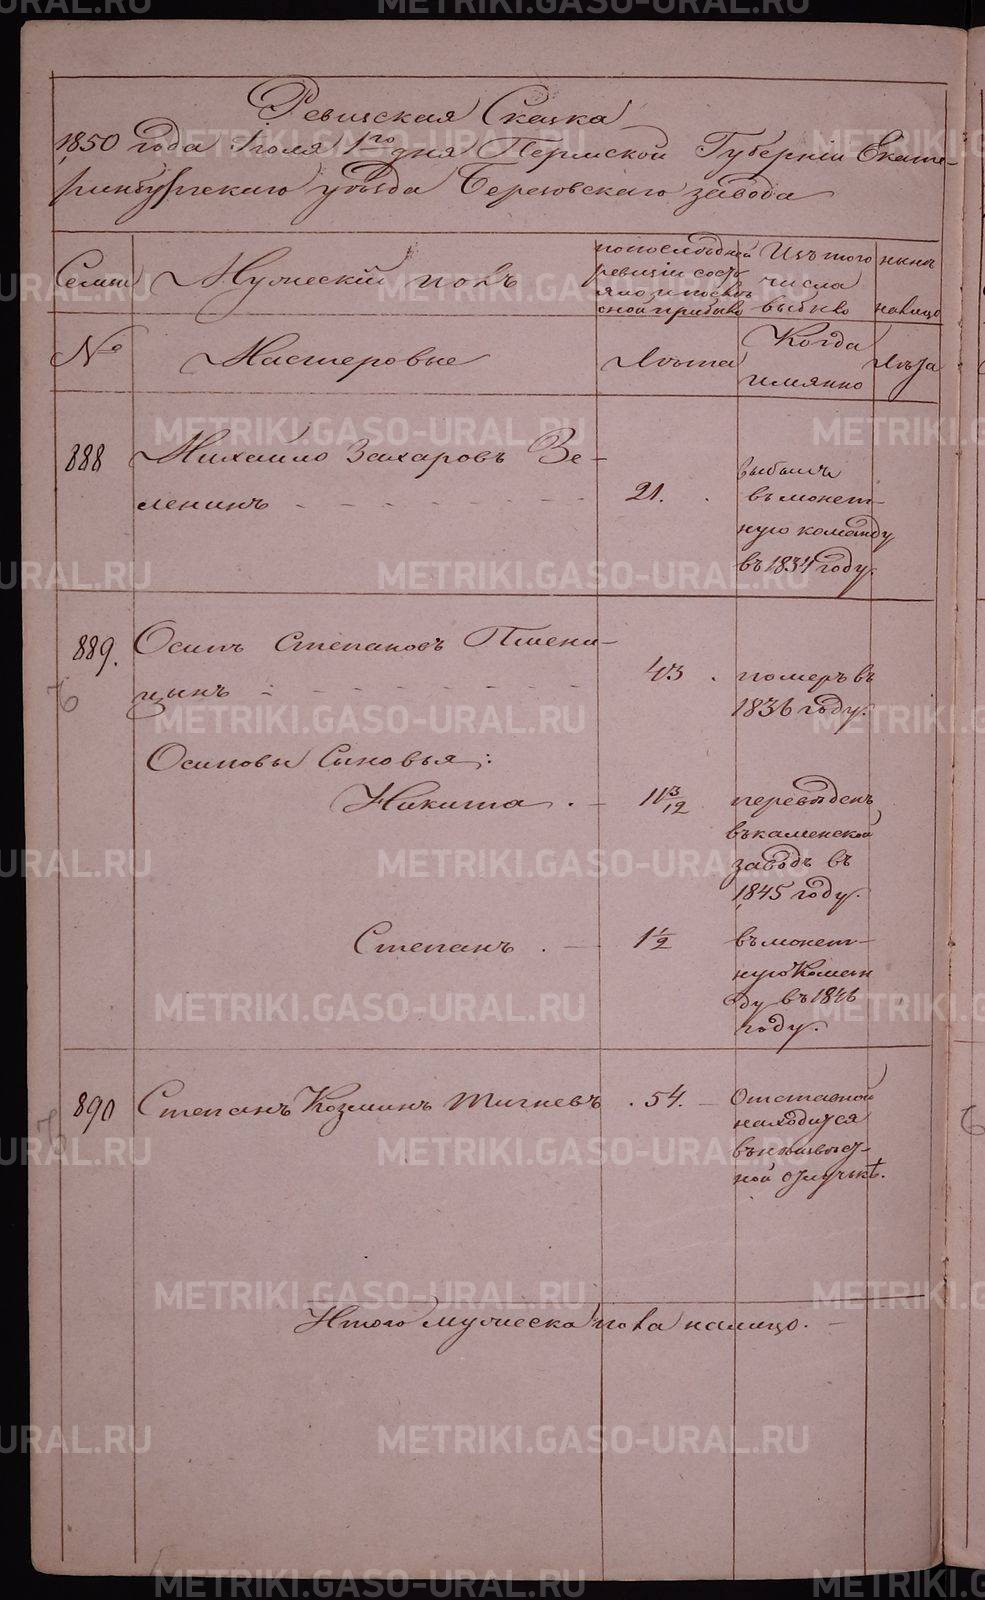 Ревизская Сказка
1850 года Іюля 1го дня Пермской Губерніи Екате-
ринбургскаго уѣзда Березовскаго завода
Семьи
Мужескій полъ
по последней ревизіи состо
яло и после
оной прибыло
Изъ того
числа
выбыло
нынѣ
налицо
№
Мастеровые
Лѣта
Когда
имянно
Лѣта
888
Михайло Захаровъ Зе-
ленинъ
21.
выбылъ
въ монет-
ную команду
въ 1834 году.
889.
Осипъ Степановъ Пшени-
цынъ
43
померъ въ
1836 году.
Осиповы Сыновья:
Никита
11 3/12
переведенъ
въ каменской
заводъ въ
1845 году.
Степанъ
1 1/2
въ монет-
ную Коман
ду въ 1846
году.
890
Степанъ Козминъ
54.
Отставной
находится
въ неизвѣст-
ной отлучкѣ.
Итого мужеска пола налицо. —
METRIKI.GASO-URAL.RU